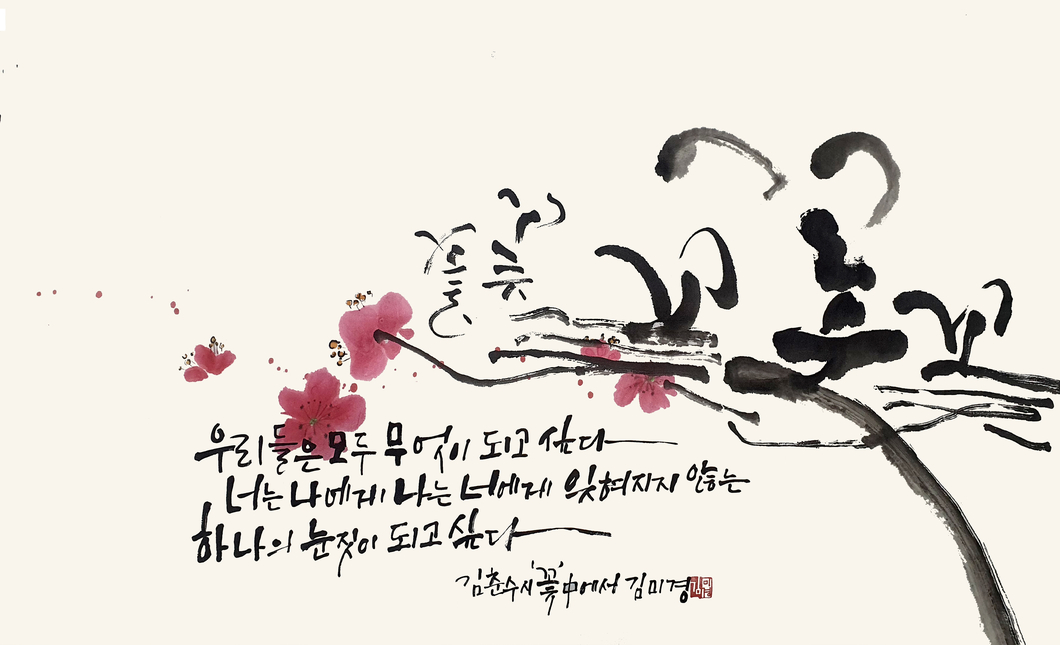 우리들은 모두 무엇이 되고 싶다
너는 나에게 나는 너에게 잊혀지지 않는
하나의 눈짓이 되고 싶다
김춘수 시 '꽃' 中에서 김미경